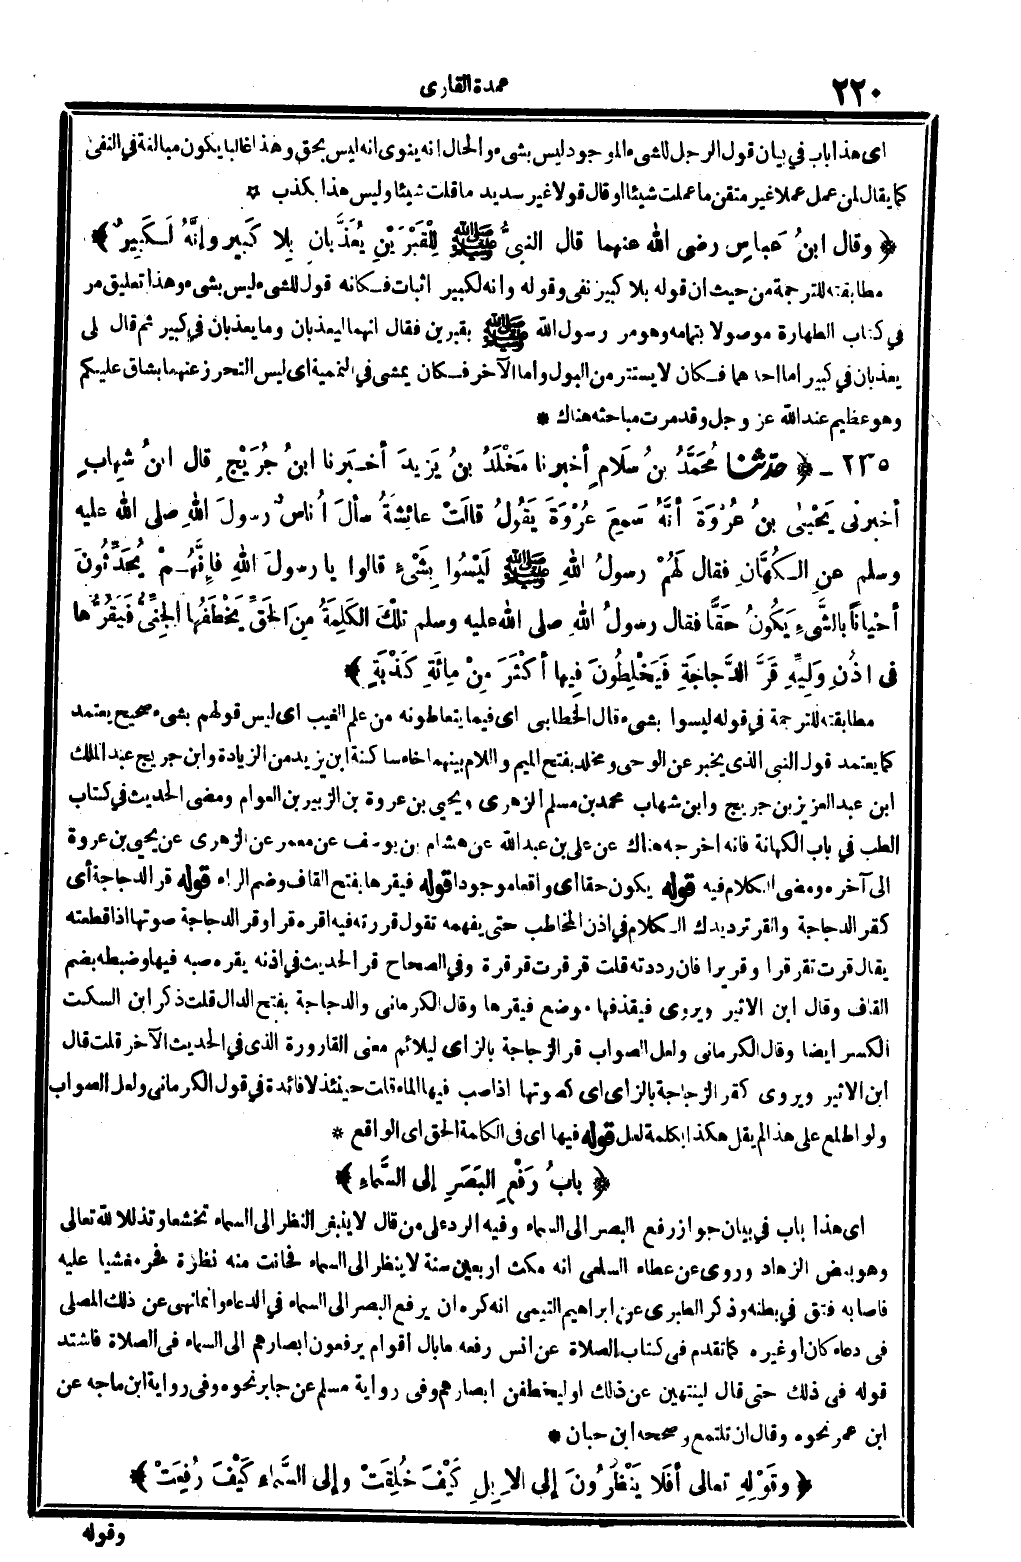 ٢٢٠
عمدة القارى
اى هذا باب في بيان قول الرجل للشىء الموجود ليس بشىء والحال انه ينوى انه ليس بحق وهذا غالبا يكون مبالغة في النفى
كما يقال لمن عمل عملا غير متقن ما عملت شيئا او قال قولا غير سديد ما قلت شيئا وليس هذا بكذب *
﴿ وقال ابنُ عباسٍ رضى الله عنهما قال النبىُّ ﷺ لِلْقَبْرَيْنِ يُعَذَّبانِ بِلا كَبِيرٍ وإنَّهُ لَـكَبِيرٌ ﴾
مطابقته للترجمة من حيث ان قوله بلا كبير نفى وقوله وانه لكبير اثبات فـكانه قول للشىء ليس بشىء وهذا تعليق مر
في كتاب الطهارة موصولا بتمامه وهو مر رسول الله ﷺ بقبرين فقال انهما ليعذبان وما يعذبان في كبير ثم قال لى
يعذبان في كبير اما احدهما فـكان لا يستتر من البول واما الآخر فـكان يمشى في النميمة اى ليس التحرز عنهما بشاق عليكم
وهو عظيم عند الله عز وجل وقد مرت مباحثه هناك *
٢٣٥ ـ ﴿ حدّثنا مُحَمَّدُ بنُ سَلَامٍ أخبرنا مَخْلَدُ بنُ يَزِيدَ أخـبَرنا ابنُ جُرَيْجٍ قال ابنُ شِهابٍ
أخبرنى يَحْيىٰ بنُ عُرْوَةَ أنَّهُ سَمِعَ عُرْوَةَ يَقُولُ قالَتْ عائِشَةُ سألَ أُناسٌ رسولَ اللهِ صلى الله عليه
وسلم عنِ الـكُهَّانِ فقال لَهُمْ رسولُ اللهِ ﷺ لَيْسُوا بِشَىْءٍ قالوا يا رسولَ اللهِ فإِنَّهُـمْ يُحَدِّثُونَ
أحْياناً بالشَّىْءِ يَكُونُ حَقًّا فقال رسولُ اللهِ صلى الله عليه وسلم تلْكَ الكَلِمَةُ مِنَ الحَقِّ يَخْطَفُها الجِنِّىُّ فَيَقُرُّها
فى أُذُنِ وَلِيِّهِ قَرَّ الدَّجاجَةِ فَيَخْلِطُونَ فِيها أكْثَرَ مِنْ مِائَةِ كَذْبَةٍ ﴾
مطابقته للترجمة في قوله ليسوا بشىء قال الخطابى اى فيما يتعاطونه من علم الغيب اى ليس قولهم بشىء صحيح يعتمد
كما يعتمد قول النبى الذى يخبر عن الوحى ومخلد بفتح الميم واللام بينهما خاء ساكنة ابن يزيد من الزيادة وابن جريج عبد الملك
ابن عبد العزيز بن جريج وابن شهاب محمد بن مسلم الزهرى ويحيى بن عروة بن الزبير بن العوام ومضى الحديث في كتاب
الطب في باب الكهانة فانه اخرجه هناك عن على بن عبد الله عن هشام بن يوسف عن معمر عن الزهرى عن يحيى بن عروة
الى آخره ومضى الـكلام فيه قوله يكون حقا اى واقعا موجودا قوله فيقرها بفتح القاف وضم الراء قوله قر الدجاجة أى
كقر الدجاجة والقر ترديدك الـكلام في اذن المخاطب حتى يفهمه تقول قررته فيه اقره قرا وقر الدجاجة صوتها اذا قطعته
يقال قرت تقر قرا وقريرا فان رددته قلت قرقرت قرقرة وفي الصحاح قر الحديث في اذنه يقره صبه فيها وضبطه بضم
القاف وقال ابن الاثير ويروى فيقذفها موضع فيقرها وقال الكرمانى والدجاجة بفتح الدال قلت ذكر ابن السكت
الكسر ايضا وقال الكرمانى ولعل الصواب قر الزجاجة بالزاى ليلائم معنى القارورة الذى في الحديث الآخر قلت قال
ابن الاثير ويروى كقر الزجاجة بالزاى اى كصوتها اذا صب فيها الماء قلت حينئذ لا فائدة في قول الكرمانى ولعل الصواب
ولو اطلع على هذا لم يقل هكذا بكلمة لعل قوله فيها اى فى الكلمة الحق اى الواقع *
﴿ بابُ رَفْعِ البَصَرِ إلى السَّماءِ ﴾
اى هذا باب في بيان جواز رفع البصر الى السماء وفيه الرد على من قال لا ينبغى النظر الى السماء تخشعا وتذللا لله تعالى
وهو بعض الزهاد وروى عن عطاء السلمى انه مكث اربعين سنة لا ينظر الى السماء فحانت منه نظرة فخر مغشيا عليه
فاصابه فتق في بطنه وذكر الطبرى عن ابراهيم التيمى انه كره ان يرفع البصر الى السماء في الدعاء وانما نهى عن ذلك المصلى
فى دعاء كان او غيره كما تقدم فى كتاب الصلاة عن انس رفعه ما بال أقوام يرفعون ابصارهم الى السماء فى الصلاة فاشتد
قوله فى ذلك حتى قال لينتهين عن ذلك او ليخطفن ابصارهم وفى رواية مسلم عن جابر نحوه وفى رواية ابن ماجه عن
ابن عمر نحوه وقال ان تلتمع وصححه ابن حبان *
﴿ وقَوْلِهِ تعالى أفَلا يَنْظُرُونَ إلى الإبِلِ كَيْفَ خُلِقَتْ وإلى السَّماءِ كَيْفَ رُفِعَتْ ﴾
وقوله